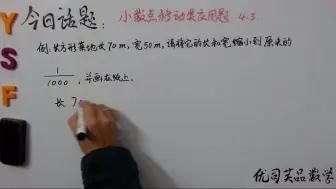 今日话题: 小数点移动类应用题 4.3.
YSF
例.长方形菜地长70m,宽50m,请将它的长和宽缩小到原来的
1/1000,并画在纸上.
长 7
优司英品数学